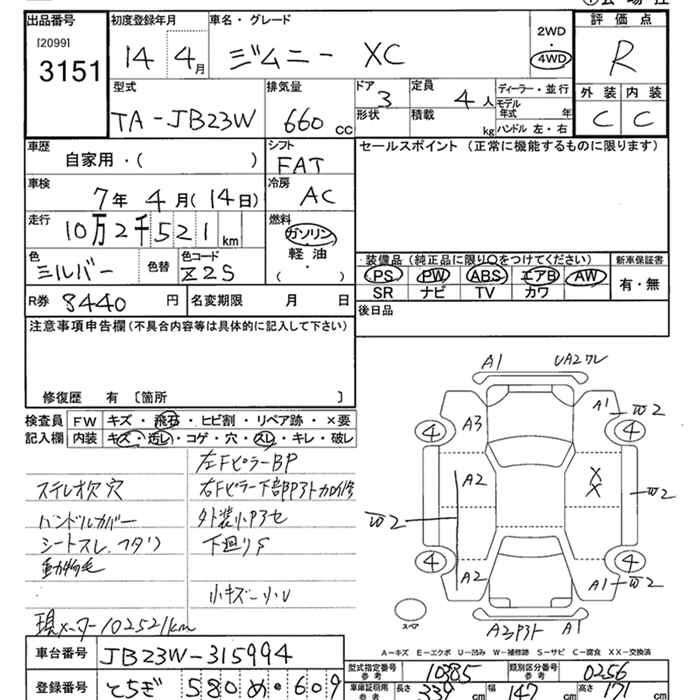 出品番号 初度登録年月 車名・グレード 評価点
[2099]
3151 14 4月 ジムニー XC 2WD・4WD R
型式 排気量 ドア 定員 ディーラー・並行 外装 内装
TA-JB23W 660cc 3 4人 モデル年式 年 C C
形状 積載 kg ハンドル 左・右
車歴 自家用・( ) シフト FAT セールスポイント(正常に機能するものに限ります)
車検 7年4月(14日) 冷房 AC
走行 10万2千521km 燃料 ガソリン
軽油
( )
色 シルバー 色替 色コード Z2S
装備品(純正品に限り○をつけてください) 新車保証書
PS PW ABS エアB AW 有・無
SR ナビ TV カワ
R券 8440円 名変期限 月 日 後日品
注意事項申告欄(不具合内容等は具体的に記入して下さい)
修復歴 有 〔箇所 〕
検査員記入欄 FW キズ・飛石・ヒビ割・リペア跡・×要
内装 キズ・汚レ・コゲ・穴・スレ・キレ・破レ
左FピラーBP
ステレオ欠 穴 右Fピラー下部BPアト
ハンドルカバー 外装小
シートスレ 下廻りS
動物毛
小キズ小U
現メーター102521km
A1
A1 W2
A3
4 4
A2 X X
W2 W2
4 4
A2 A1 W2
スペア
A2 A1
A-キズ E-エクボ U-凹み W-補修跡 S-サビ C-腐食 XX-交換済
車台番号 JB23W-315994
型式指定番号 参考 10385 類別区分番号 参考 0256
登録番号 とちぎ 580 め・609
車庫証明用 参考 長さ 339cm 幅 147cm 高さ 171cm